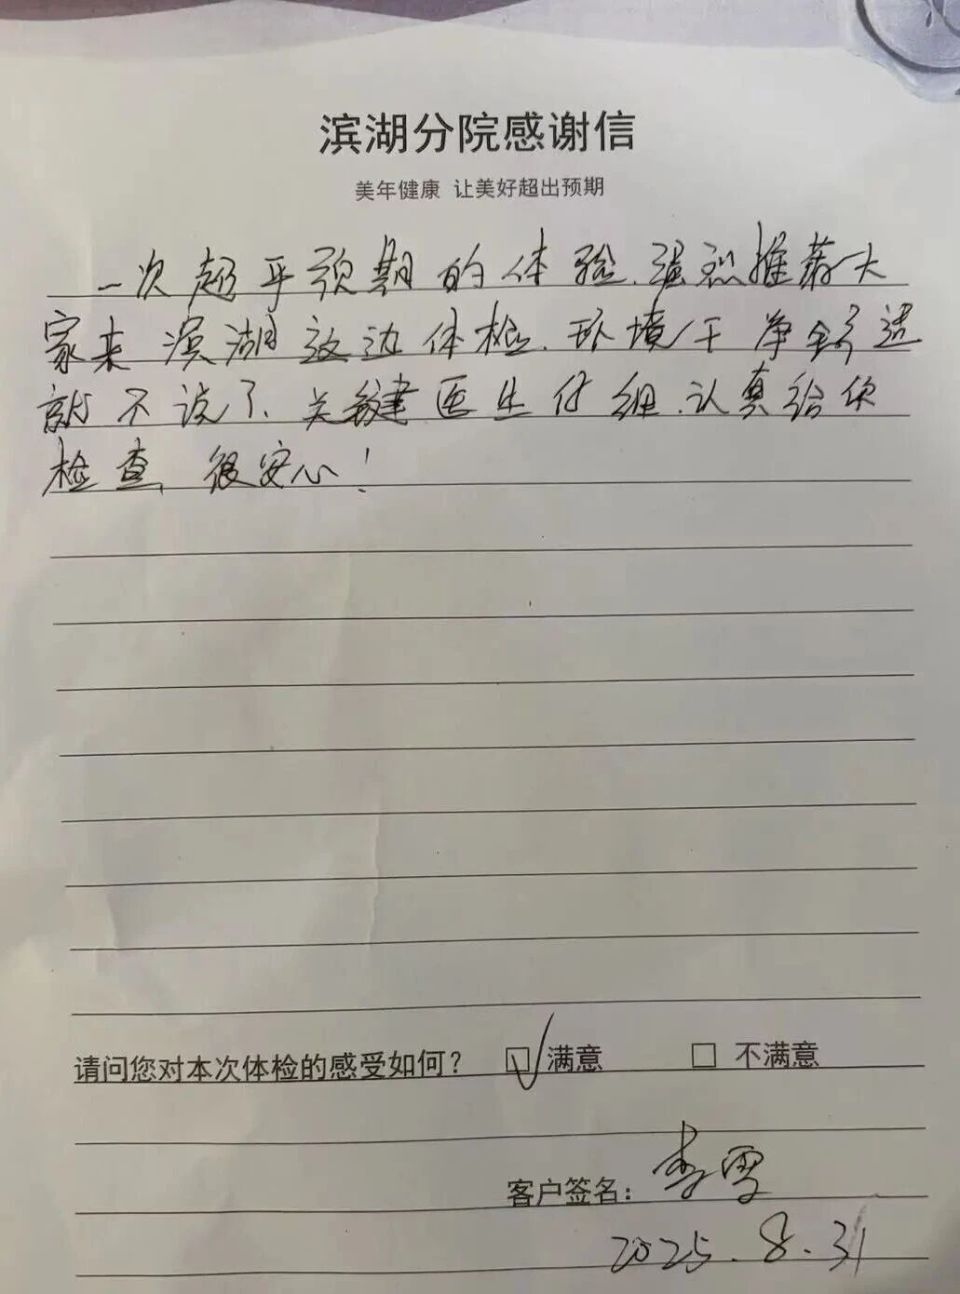 滨湖分院感谢信
美年健康 让美好超出预期
一次超乎预期的体验.强烈推荐大
家来滨湖这边体检.环境干净舒适
就不说了、关键医生仔细.认真给你
检查,很安心!
请问您对本次体检的感受如何? ☑满意 □不满意
客户签名:李雪
2025.8.31